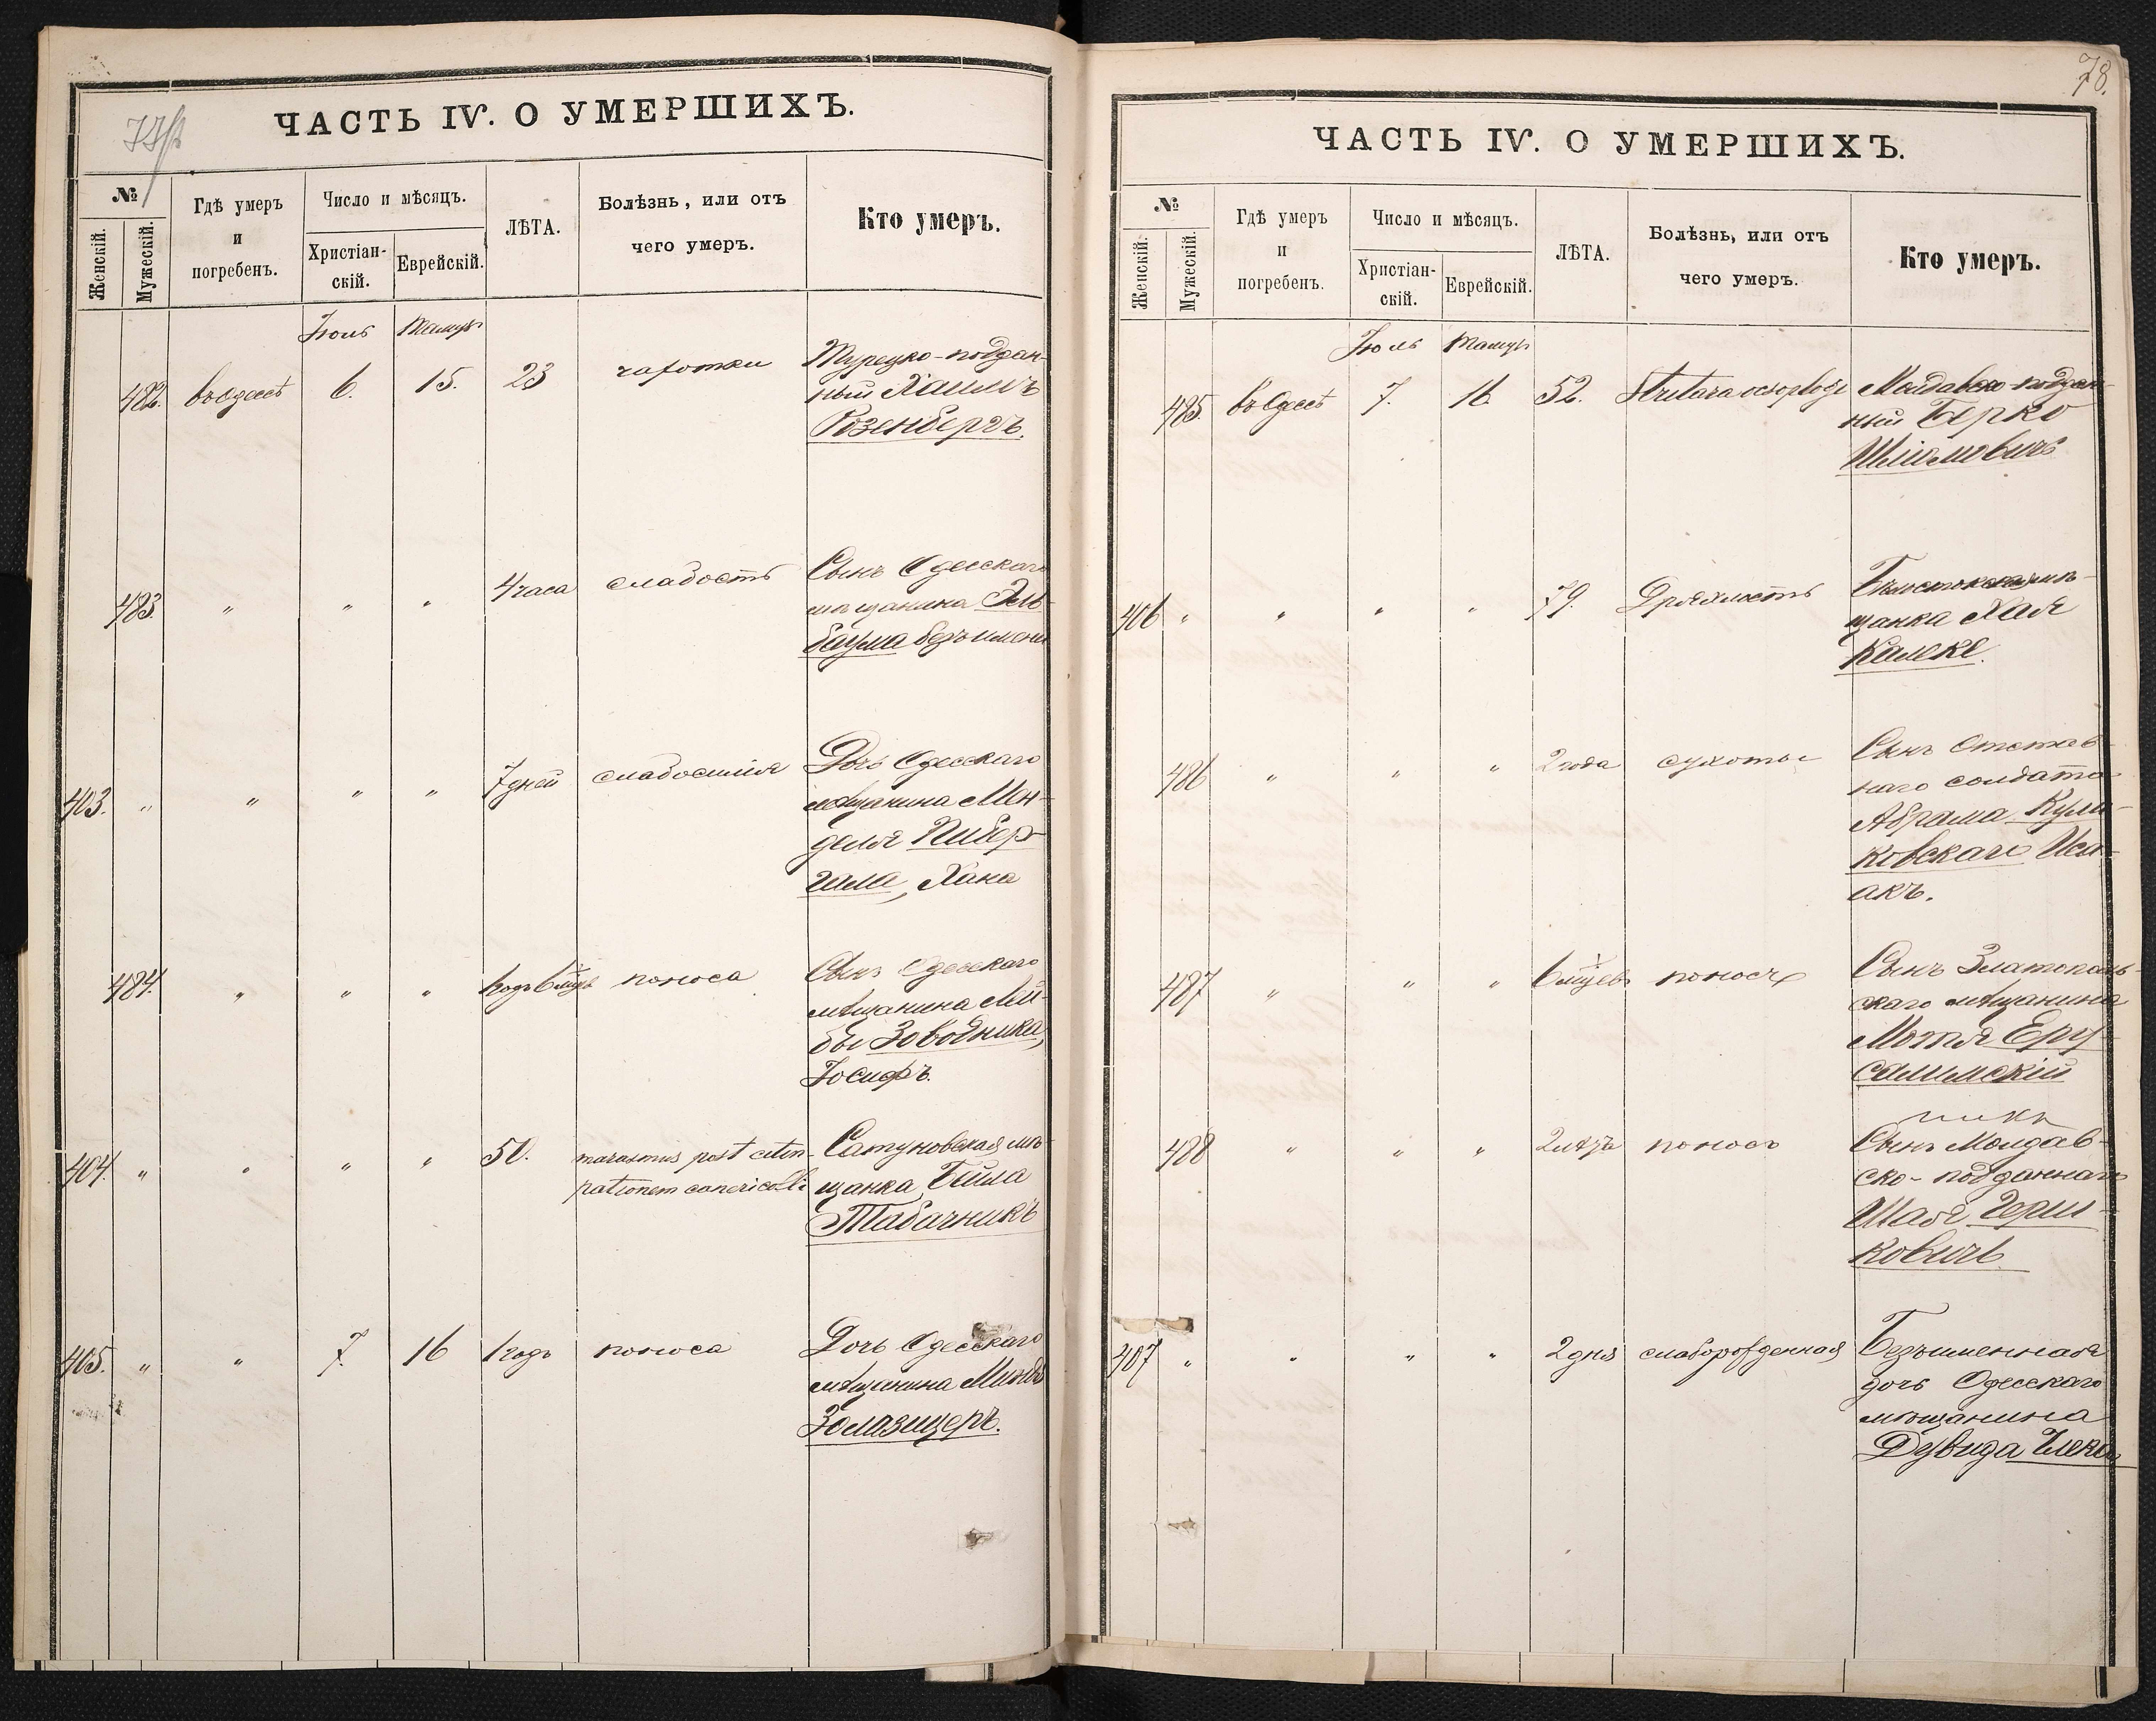 77
ЧАСТЬ IV. О УМЕРШИХЪ.
№
Женскій.
Мужескій.
Гдѣ умеръ
и
погребенъ.
Число и мѣсяцъ.
Христіан-
скій.
Еврейскій.
ЛѢТА.
Болѣзнь, или отъ
чего умеръ.
Кто умеръ.
Іюль Тамузъ
482. въ Одессѣ 6. 15. 23 чахотки Турецко-поддан-
ный Хаимъ
Розенбергъ.
483. " " " 4 часа слабость Сынъ Одесскаго
мѣщанина Эль-
баума безъ имени
403. " " " " 7 дней слабосилія Дочь Одесскаго
мѣщанина Мен-
деля Пибер-
гала, Хана
484. " " " 1 годъ 6 мцъ поноса Сынъ Одесскаго
мѣщанина Лей-
бы Заводника,
Іосифъ.
404. " " " " 50. marasmus post extir- Сатуновская мѣ-
pationem cancri colli щанка Бейла
Табачникъ
405. " " 7. 16 1 годъ поноса Дочь Одесскаго
мѣщанина
Золазицеръ.
78.
ЧАСТЬ IV. О УМЕРШИХЪ.
№
Женскій.
Мужескій.
Гдѣ умеръ
и
погребенъ.
Число и мѣсяцъ.
Христіан-
скій.
Еврейскій.
ЛѢТА.
Болѣзнь, или отъ
чего умеръ.
Кто умеръ.
Іюль Тамузъ
485. въ Одессѣ 7. 16. 52. Молдавско-поддан-
ный Берко
Шліомовичъ
406 " " " " 79. Дряхлость Бѣлостокская мѣ-
щанка Хая
Калеке.
486 " " " 2 года сухоты Сынъ Отстав-
наго солдата
Абрама Кули-
ковскаго Иса-
акъ.
487 " " " 6 мцевъ поносъ Сынъ Златополь-
скаго мѣщанина
Мотя Еру-
салимскій
488 " " " 2 лѣтъ поносъ Сынъ Молдав-
ско-подданнаго
Шая Герш-
ковичъ
407 " " " " 2 дня слаборожденная Безъименная
дочь Одесскаго
мѣщанина
Дувида